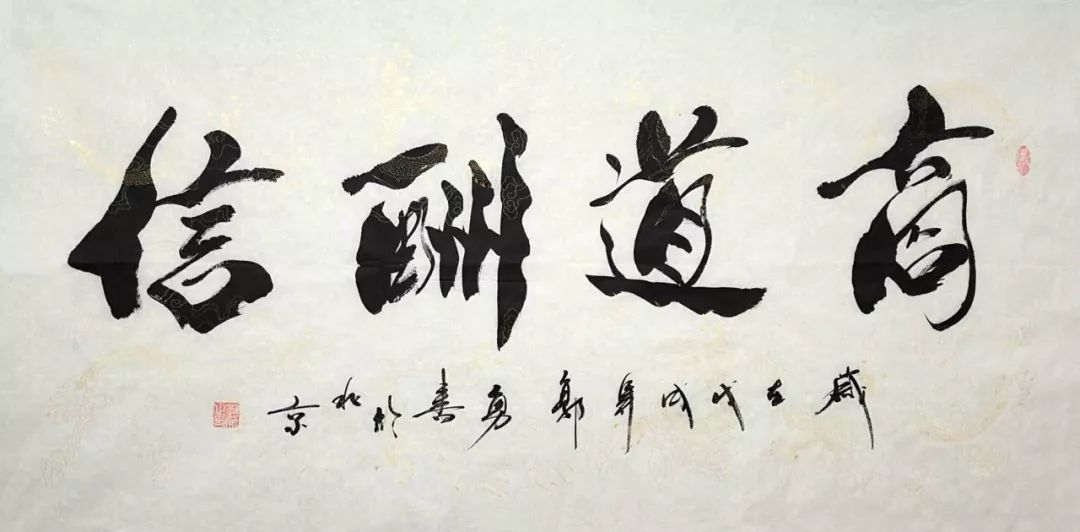 商道酬信
岁在戊戌年郭勇书於北京